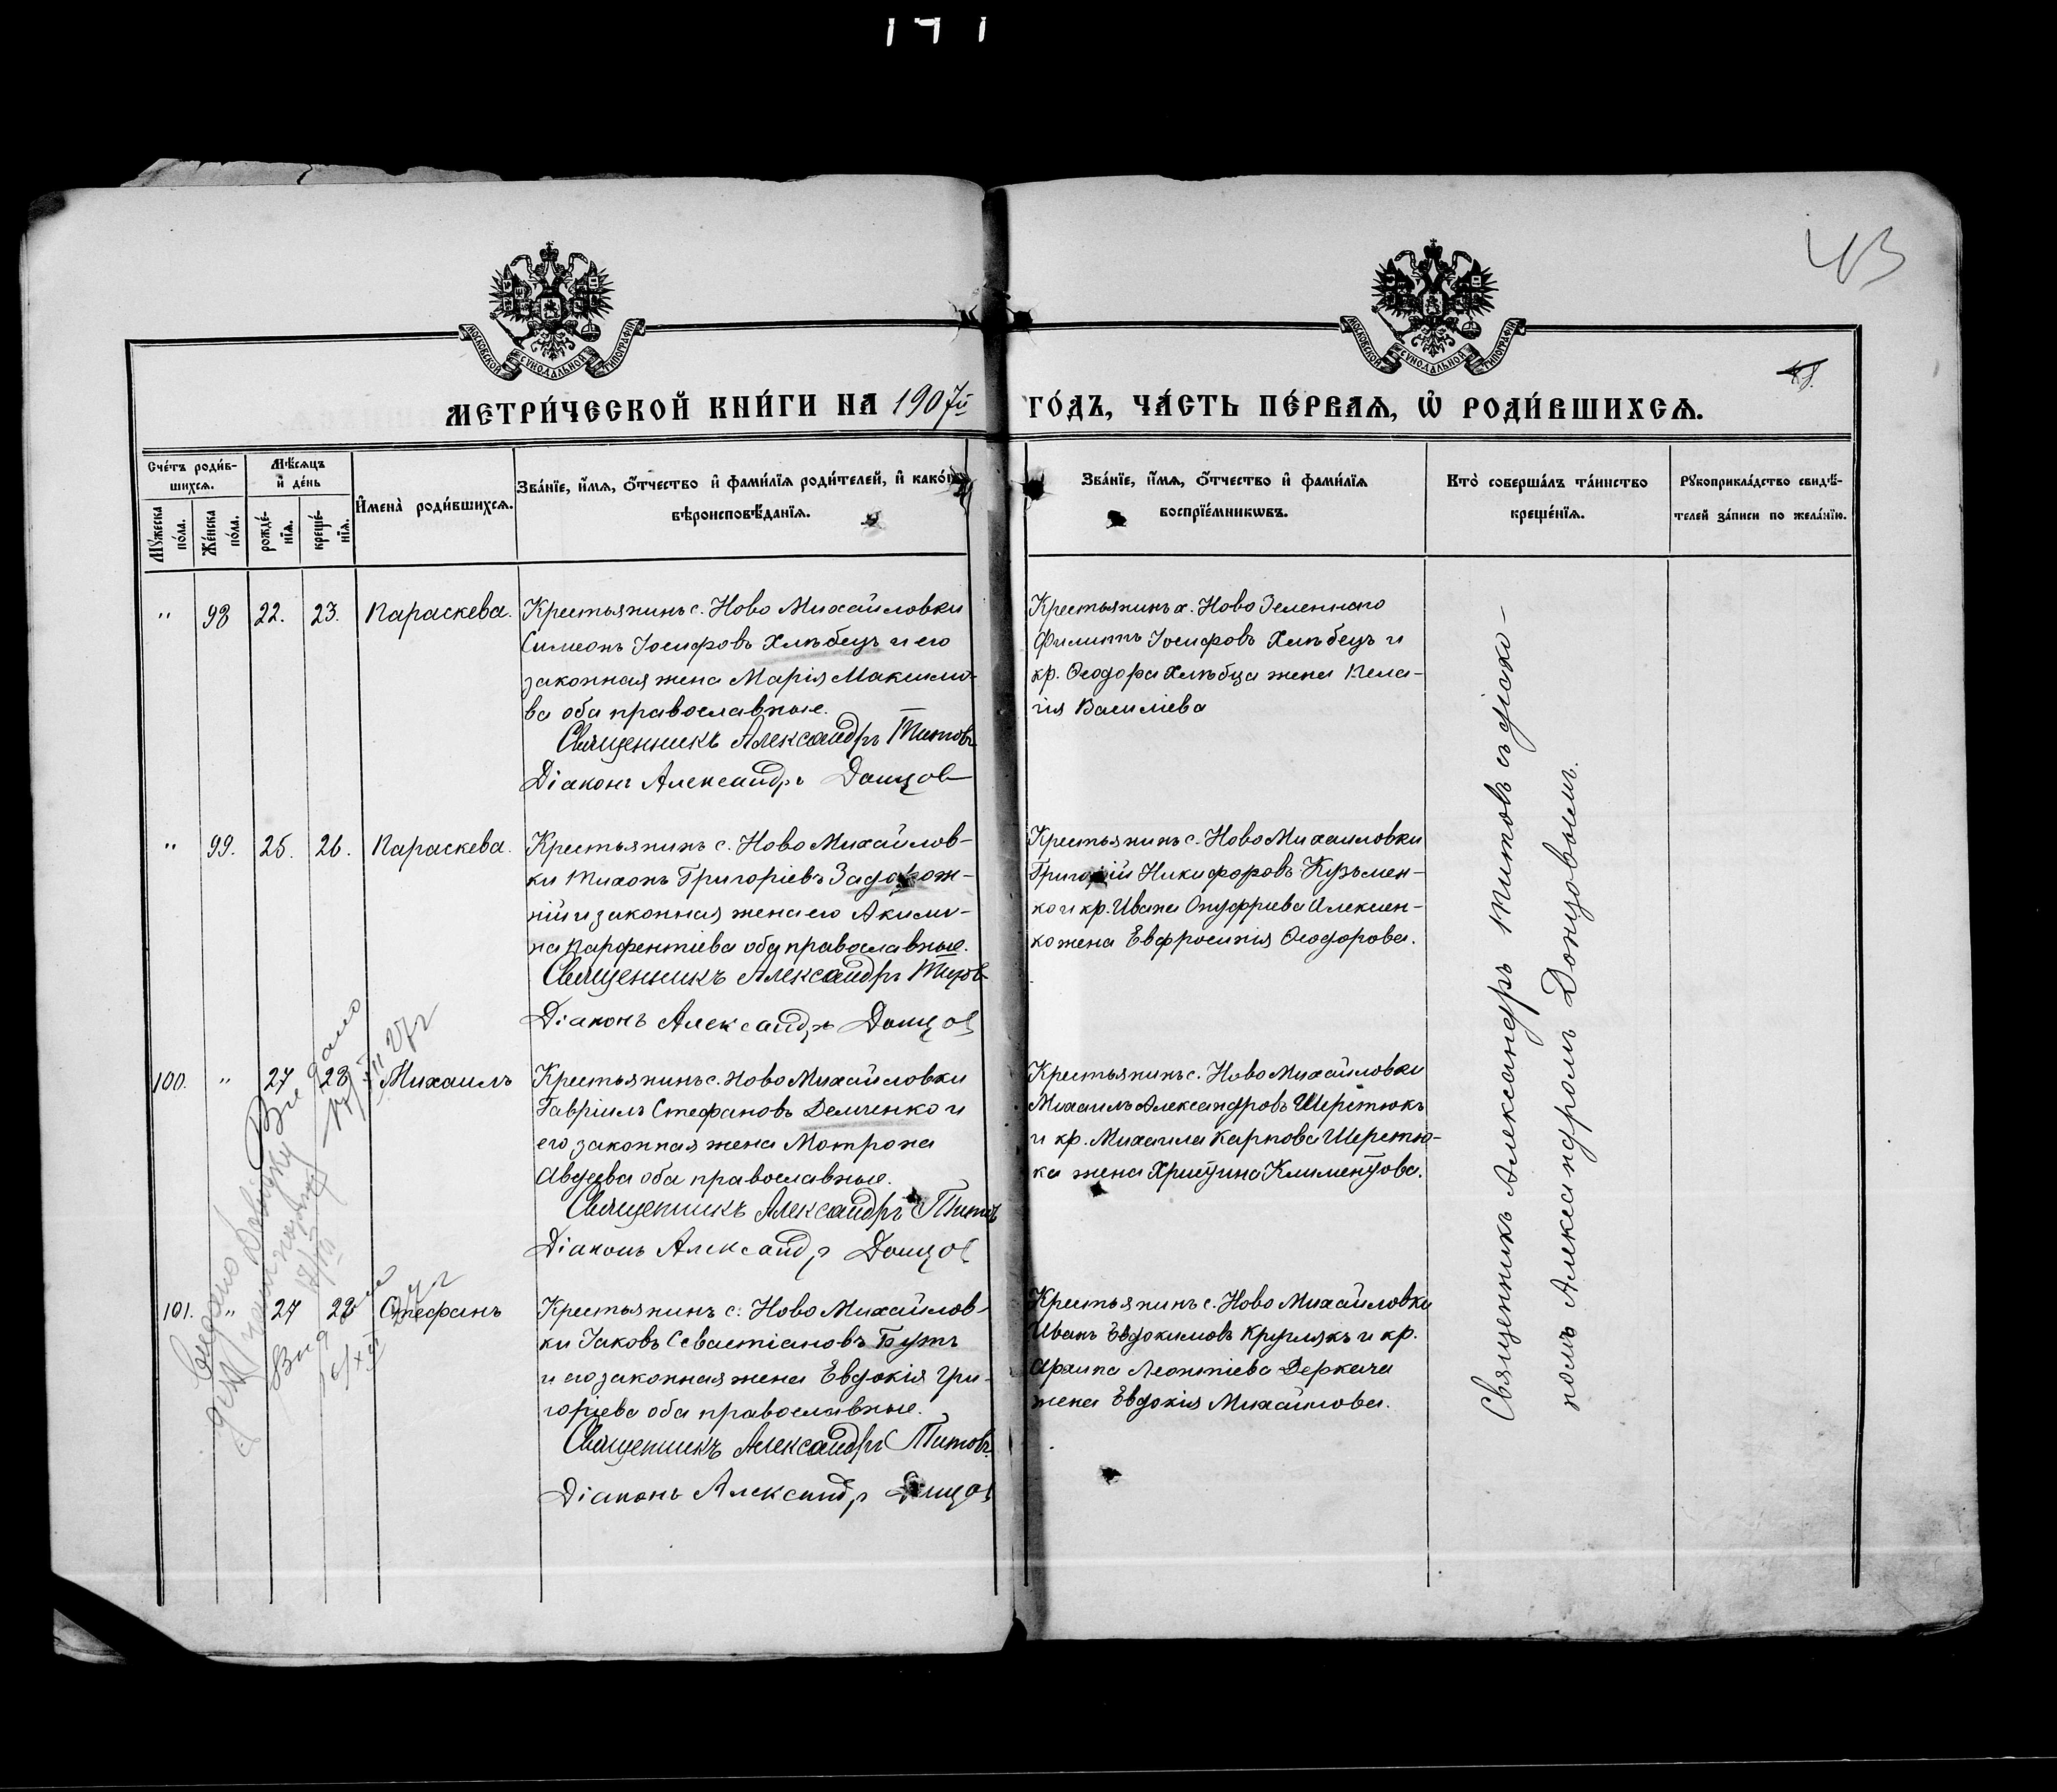 171
43
МОСКОВСКОЙ СѴНОДАЛЬНОЙ ТИПОГРАФІИ
МОСКОВСКОЙ СѴНОДАЛЬНОЙ ТИПОГРАФІИ
МЕТРИ́ЧЕСКОЙ КНИ́ГИ НА 1907й ГО́ДЪ, ЧА́СТЬ ПЕ́РВАѦ, Ѡ҆ РОДИ́ВШИХСѦ.
Сче́тъ роди́в-
шихсѧ.
Мѣ́сѧцъ
и҆ де́нь
Мꙋ́жеска
по́ла.
Же́нска
по́ла.
рожде́-
нїѧ.
креще́-
нїѧ.
И҆мена̀ роди́вшихсѧ.
Зва́нїе, и҆́мѧ, ѻ҆́тчество и҆ фами́лїѧ роди́телей, и҆ како́гѡ
вѣроисповѣ́данїѧ.
Зва́нїе, и҆́мѧ, ѻ҆́тчество и҆ фами́лїѧ
воспрїе́мникѡвъ.
Кто̀ соверша́лъ та́инство
креще́нїѧ.
Рꙋкоприкла́дство свидѣ́-
телей за́писи по жела́нїю.
" 98 22. 23. Параскева.
Крестьянинъ с. Ново Михайловки
Симеонъ Іосифовъ Хлѣбецъ и его
законная жена Марія Максимо-
ва оба православные.
Священникъ Александръ Титовъ
Діаконъ Александръ Донцов
Крестьянинъ х. Ново Зеленнаго
Филиппъ Іосифовъ Хлѣбецъ и
кр. Ѳеодора Хлѣбца жена Пела-
гія Василіева
" 99. 25. 26. Параскева.
Крестьянинъ с. Ново Михайлов-
ки Тихонъ Григоріевъ Задорож-
ній и законная жена его Акили-
на Парфентіева оба православные.
Священникъ Александръ Титов
Діаконъ Александръ Донцов
Крестьянинъ с. Ново Михаиловки
Григорій Никифоровъ Кузьмен-
ко и кр. Ивана Онуфріева Алексен-
ко жена Евфросинія Ѳеодорова.
100. " 27 28 Михаилъ
Крестьянинъ с. Ново Михайловки
Гавріилъ Стефановъ Демченко и
его законная жена Мотрона
Авдѣева оба православные.
Священникъ Александръ Титовъ
Діаконъ Александр Донцов
Крестьянинъ с. Ново Михайловки
Михаилъ Александровъ Шеретюкъ
и кр. Михаила Карпова Шеретю-
ка жена Христина Климентова.
101. " 27 28 Стефанъ
Крестьянинъ с. Ново Михайлов-
ки Іаковъ Севастіановъ Бутъ
и его законная жена Евдокія Гри-
горіева оба православные.
Священникъ Александръ Титовъ
Діаконъ Александр Донцов
Крестьянинъ с. Ново Михайловки
Иванъ Евдокимовъ Круглякъ и кр.
Архипа Леонтіева Деркача
жена Евдокія Михайлова.
Священникъ Александръ Титовъ съ діако-
номъ Александромъ Донцовымъ.